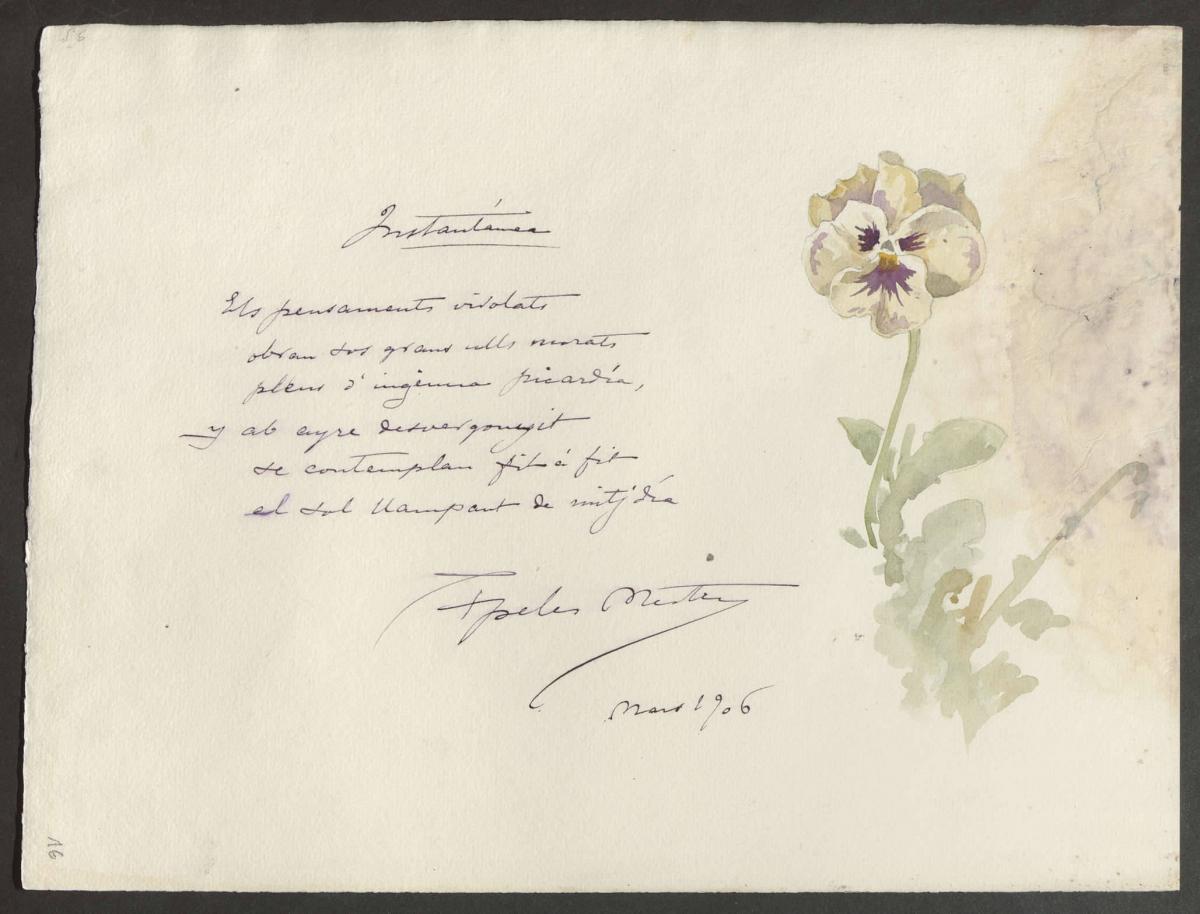 Instantánea
Els pensaments violats
obran sos grans ulls morats
plens d'ingénua picardía,
y ab ayre desvergonyit
se contemplan fit á fit
el sol llampant de mitj'día
Apeles Mestres
Mars 1906
16